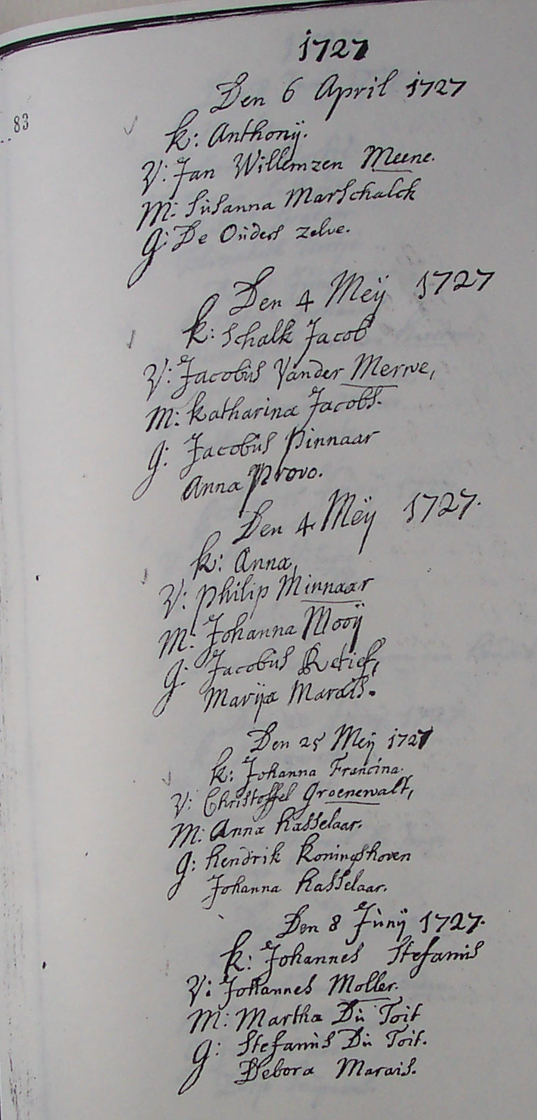 1727
83
Den 6 April 1727
k: Anthonÿ.
V: Jan Willemzen Meene.
M: Susanna Marschalck
G: De Ouders zelve.
Den 4 Meÿ 1727
k: Schalk Jacob
V: Jacobus Vander Merwe,
M: Katharina Jacobs.
G: Jacobus Pinnaar
Anna Provo.
Den 4 Meÿ 1727.
k: Anna,
V: Philip Minnaar
M: Johanna Mooÿ
G: Jacobus Retief,
Marÿa Marais.
Den 25 Meÿ 1727
k: Johanna Francina.
V: Christoffel Groenewalt,
M: Anna Hasselaar.
G: Hendrik Koningshoven
Johanna Hasselaar.
Den 8 Junÿ 1727.
k: Johannes Stefanus
V: Johannes Moller.
M: Martha Du Toit
G: Stefanus Du Toit.
Debora Marais.